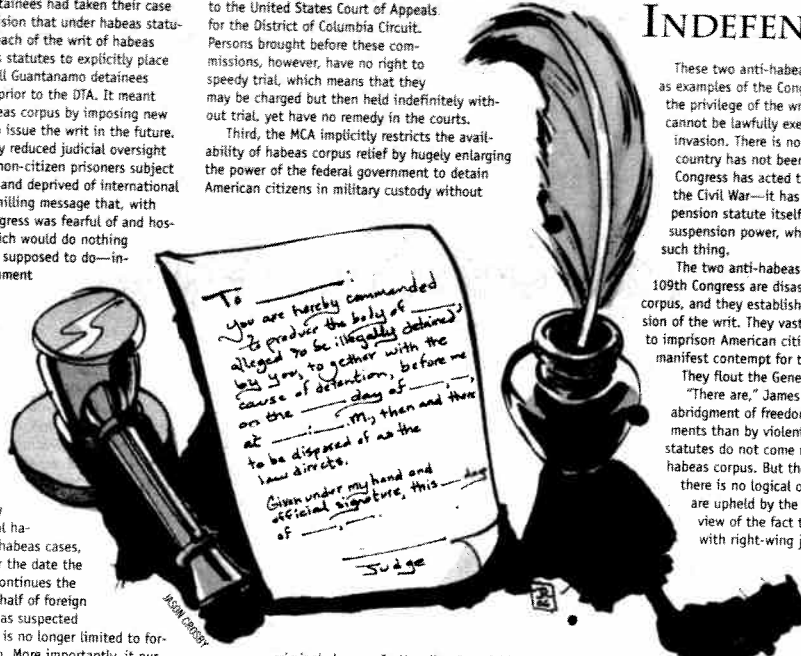 tainees had taken their case
sion that under habeas statu-
each of the writ of habeas
s statutes to explicitly place
ll Guantanamo detainees
prior to the DTA. It meant
eas corpus by imposing new
issue the writ in the future.
y reduced judicial oversight
non-citizen prisoners subject
and deprived of international
hilling message that, with
gress was fearful of and hos-
ich would do nothing
supposed to do—in-
ument
l ha-
habeas cases,
r the date the
ontinues the
half of foreign
as suspected
is no longer limited to for-
More importantly, it
to the United States Court of Appeals
for the District of Columbia Circuit.
Persons brought before these com-
missions, however, have no right to
speedy trial, which means that they
may be charged but then held indefinitely with-
out trial, yet have no remedy in the courts.
Third, the MCA implicitly restricts the avail-
ability of habeas corpus relief by hugely enlarging
the power of the federal government to detain
American citizens in military custody without
To ______:
you are hereby commanded
to produce the body of ____,
alleged to be illegally detained
by you, together with the
cause of detention, before me
on the ____ day of ____, __,
at __:__.M., then and there
to be disposed of as the
law directs.
Given under my hand and
official signature, this ___ day
of ____, ___.
Judge
JASON CROSBY
INDEFEN
These two anti-habea
as examples of the Cong
the privilege of the wr
cannot be lawfully exe
invasion. There is no
country has not been
Congress has acted t
the Civil War—it has
pension statute itself
suspension power, wh
such thing.
The two anti-habeas
109th Congress are disas
corpus, and they establish
sion of the writ. They vast
to imprison American citi
manifest contempt for t
They flout the Gene
"There are," James
abridgment of freedom
ments than by violent
statutes do not come
habeas corpus. But th
there is no logical o
are upheld by the
view of the fact t
with right-wing j